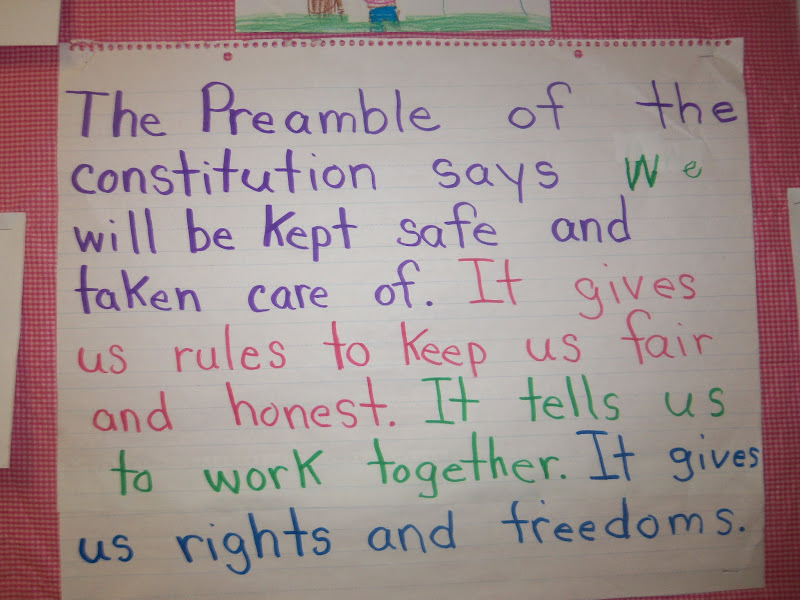 The Preamble of the
constitution says We
will be Kept safe and
taken care of. It gives
us rules to Keep us fair
and honest. It tells us
to work together. It gives
us rights and freedoms.